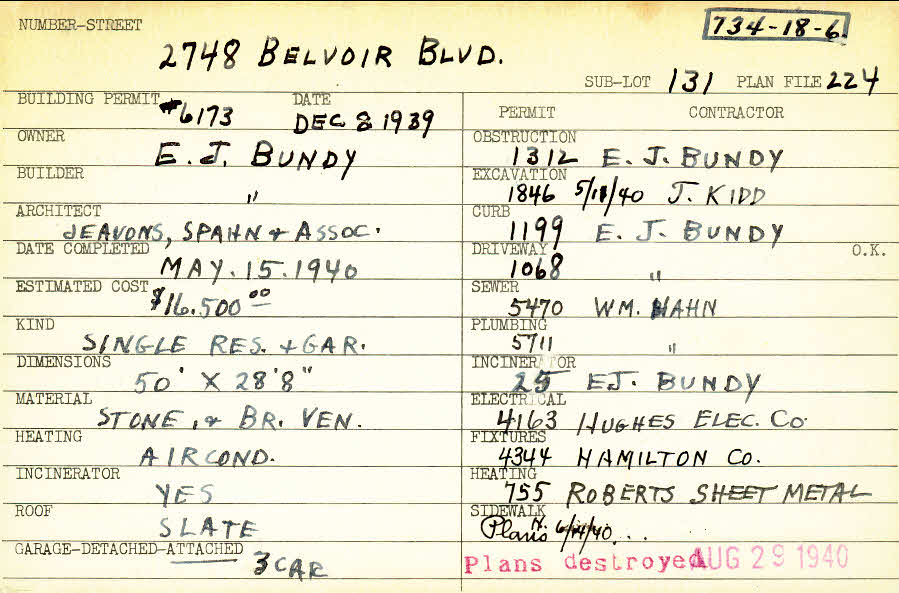 NUMBER-STREET
734-18-6.
2748 BELVOIR BLVD.
SUB-LOT 131 PLAN FILE 224
BUILDING PERMIT #6173 DATE DEC 8 1939
OWNER E. J. BUNDY
BUILDER "
ARCHITECT JEAVONS, SPAHN + ASSOC.
DATE COMPLETED MAY. 15. 1940
ESTIMATED COST $16.500 00
KIND SINGLE RES. + GAR.
DIMENSIONS 50' X 28'8"
MATERIAL STONE, + BR. VEN.
HEATING AIR COND.
INCINERATOR YES
ROOF SLATE
GARAGE-DETACHED-ATTACHED 3 CAR
PERMIT CONTRACTOR
OBSTRUCTION 1312 E. J. BUNDY
EXCAVATION 1846 J. KIDD
CURB 1199 E. J. BUNDY
DRIVEWAY 1068 " O.K.
SEWER 5470 WM. HAHN
PLUMBING 5711 "
INCINERATOR 25 E.J. BUNDY
ELECTRICAL 4163 HUGHES ELEC. CO.
FIXTURES 4344 HAMILTON CO.
HEATING 755 ROBERTS SHEET METAL
SIDEWALK
Plans
Plans destroyed AUG 29 1940